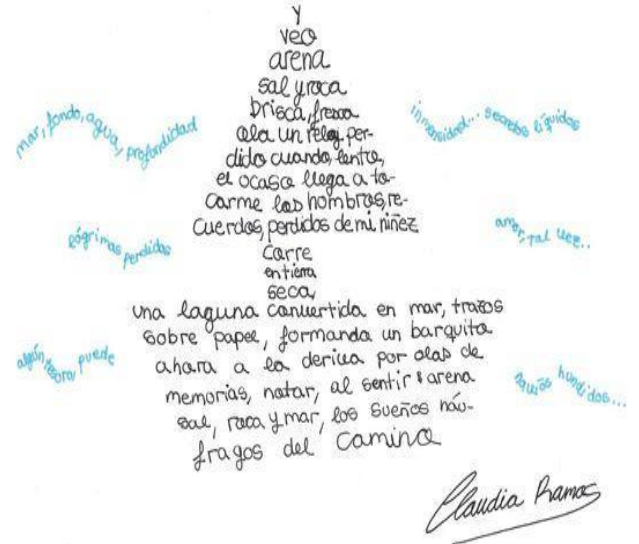 y
veo
arena
sal y roca
brisca, fresca
ola un reloj per-
dido cuando, lento,
el ocaso llega a to-
carme los hombros, re-
cuerdos, perdidos de mi niñez
corre
en tierra
seca,
una laguna convertida en mar, trazos
sobre papel, formando un barquito
ahora a la deriva por olas de
memorias, notar, al sentir arena
sal, roca y mar, los sueños náu-
fragos del camino
mar, fondo, agua, profundidad
inmensidad... secretos líquidos
lágrimas perdidas
amor, tal vez...
algún tesoro, puede
hundidos...
Claudia Ramos